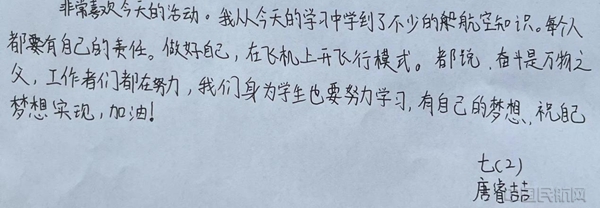 非常喜欢今天的活动。我从今天的学习中学到了不少的航空知识。每个人
都要有自己的责任。做好自己，在飞机上开飞行模式。都说，奋斗是万物之
父，工作者们都在努力，我们身为学生也要努力学习，有自己的梦想，祝自己
梦想实现，加油！
七(2)
唐睿喆
中国民航网